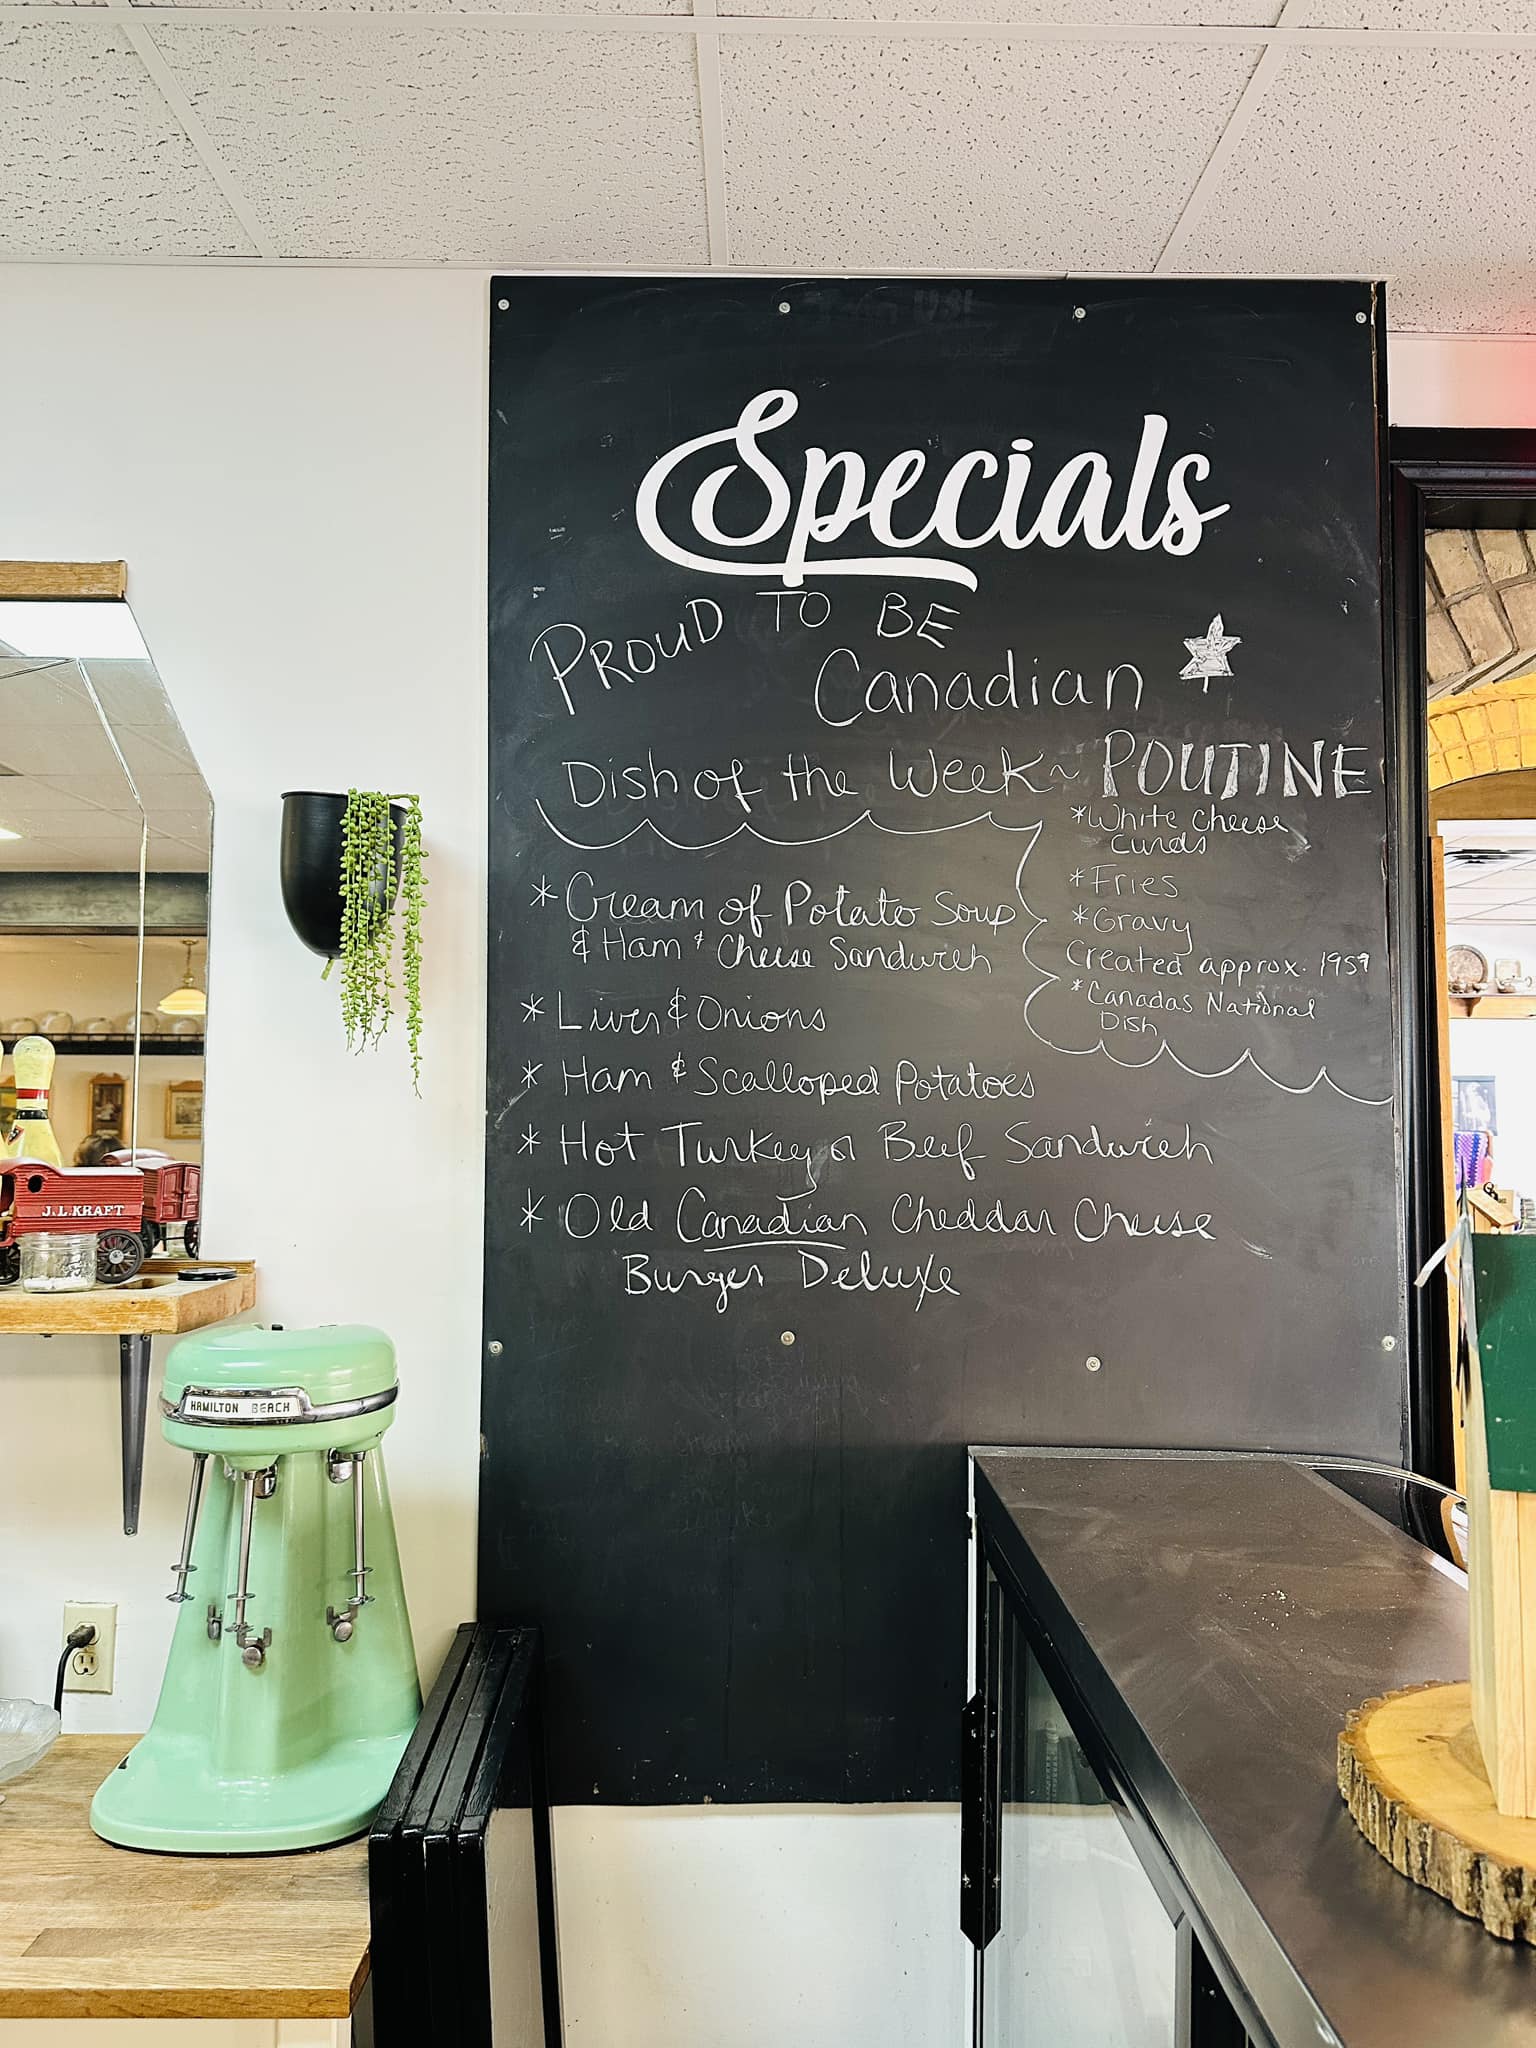 Specials
PROUD TO BE
Canadian
Dish of the Week ~ POUTINE
*White Cheese
Curds
*Fries
*Gravy
Created approx. 1957
*Canadas National
Dish
* Cream of Potato Soup
& Ham & Cheese Sandwich
* Liver & Onions
* Ham & Scalloped Potatoes
* Hot Turkey or Beef Sandwich
* Old Canadian Cheddar Cheese
Burger Deluxe
J.L.KRAFT
HAMILTON BEACH